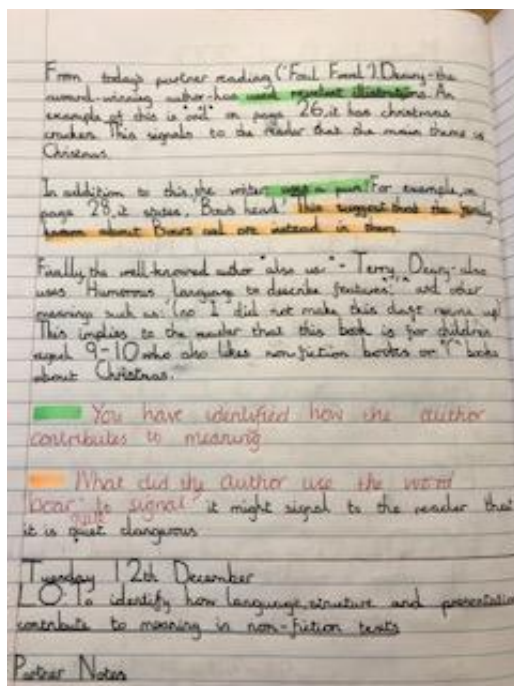 From today's partner reading ("Foul Facts"). Deary - the
award-winning author - has used repentant illustrations. An
example of this is on page 26, it has christmas
crackers. This signals to the reader that the main theme is
Christmas.
In addition to this, the writer uses a pun. For example, on
page 28, it states, 'Boars head'. This suggest that the
about Boars
Finally the well-known author "also us" - Terry Deary - also
uses "Humorous language to describe features" and other
meanings such as: (no I did not make this daft name up)
This implies to the reader that this book is for children
aged 9-10 who also likes non-fiction books or books
about Christmas.
You have identified how the author
contributes to meaning
What did the author use the word
bear to signal it might signal to the reader that
it is quiet dangerous
quite
Tuesday 12th December
LO To identify how language, structure and presentation
contribute to meaning in non-fiction texts
Partner Notes